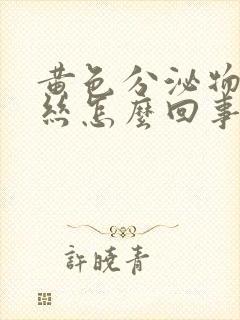 黄色分泌物
丝怎麼回事
許曉青